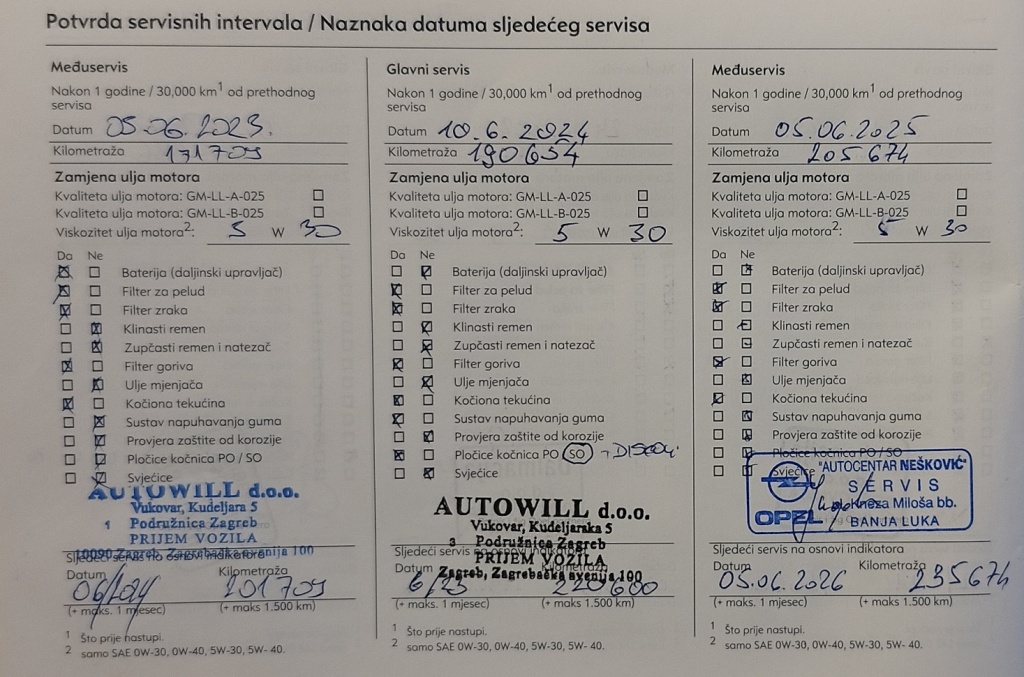 Potvrda servisnih intervala / Naznaka datuma sljedećeg servisa
Međuservis
Nakon 1 godine / 30,000 km1 od prethodnog
servisa
Datum 05.06.2023.
Kilometraža 171709
Zamjena ulja motora
Kvaliteta ulja motora: GM-LL-A-025
Kvaliteta ulja motora: GM-LL-B-025
Viskozitet ulja motora2: 5 W 30
Da Ne
Baterija (daljinski upravljač)
Filter za pelud
Filter zraka
Klinasti remen
Zupčasti remen i natezač
Filter goriva
Ulje mjenjača
Kočiona tekućina
Sustav napuhavanja guma
Provjera zaštite od korozije
Pločice kočnica PO / SO
Svjećice
AUTOWILL d.o.o.
Vukovar, Kudeljara 5
1 Podružnica Zagreb
PRIJEM VOZILA
10090 Zagreb, Zagrebačka avenija 100
Sljedeći servis na osnovi indikatora
Datum 06/2024 Kilometraža 201709
(+ maks. 1 mjesec) (+ maks 1.500 km)
1 Što prije nastupi.
2 samo SAE 0W-30, 0W-40, 5W-30, 5W- 40.
Glavni servis
Nakon 1 godine / 30,000 km1 od prethodnog
servisa
Datum 10.6.2024
Kilometraža 190654
Zamjena ulja motora
Kvaliteta ulja motora: GM-LL-A-025
Kvaliteta ulja motora: GM-LL-B-025
Viskozitet ulja motora2: 5 W 30
Da Ne
Baterija (daljinski upravljač)
Filter za pelud
Filter zraka
Klinasti remen
Zupčasti remen i natezač
Filter goriva
Ulje mjenjača
Kočiona tekućina
Sustav napuhavanja guma
Provjera zaštite od korozije
Pločice kočnica PO SO + DISCOVI
Svjećice
AUTOWILL d.o.o.
Vukovar, Kudeljarska 5
3 Podružnica Zagreb
PRIJEM VOZILA
Zagreb, Zagrebačka avenija 100
Sljedeći servis na osnovi indikatora
Datum 6/25 Kilometraža 220600
(+ maks. 1 mjesec) (+ maks 1.500 km)
1 Što prije nastupi.
2 samo SAE 0W-30, 0W-40, 5W-30, 5W- 40.
Međuservis
Nakon 1 godine / 30,000 km1 od prethodnog
servisa
Datum 05.06.2025
Kilometraža 205674
Zamjena ulja motora
Kvaliteta ulja motora: GM-LL-A-025
Kvaliteta ulja motora: GM-LL-B-025
Viskozitet ulja motora2: 5 W 30
Da Ne
Baterija (daljinski upravljač)
Filter za pelud
Filter zraka
Klinasti remen
Zupčasti remen i natezač
Filter goriva
Ulje mjenjača
Kočiona tekućina
Sustav napuhavanja guma
Provjera zaštite od korozije
Pločice kočnica PO / SO
Svjećice
"AUTOCENTAR NEŠKOVIĆ"
SERVIS
Kneza Miloša bb.
OPEL BANJA LUKA
Sljedeći servis na osnovi indikatora
Datum 05.06.2026 Kilometraža 235674
(+ maks. 1 mjesec) (+ maks 1.500 km)
1 Što prije nastupi.
2 samo SAE 0W-30, 0W-40, 5W-30, 5W- 40.